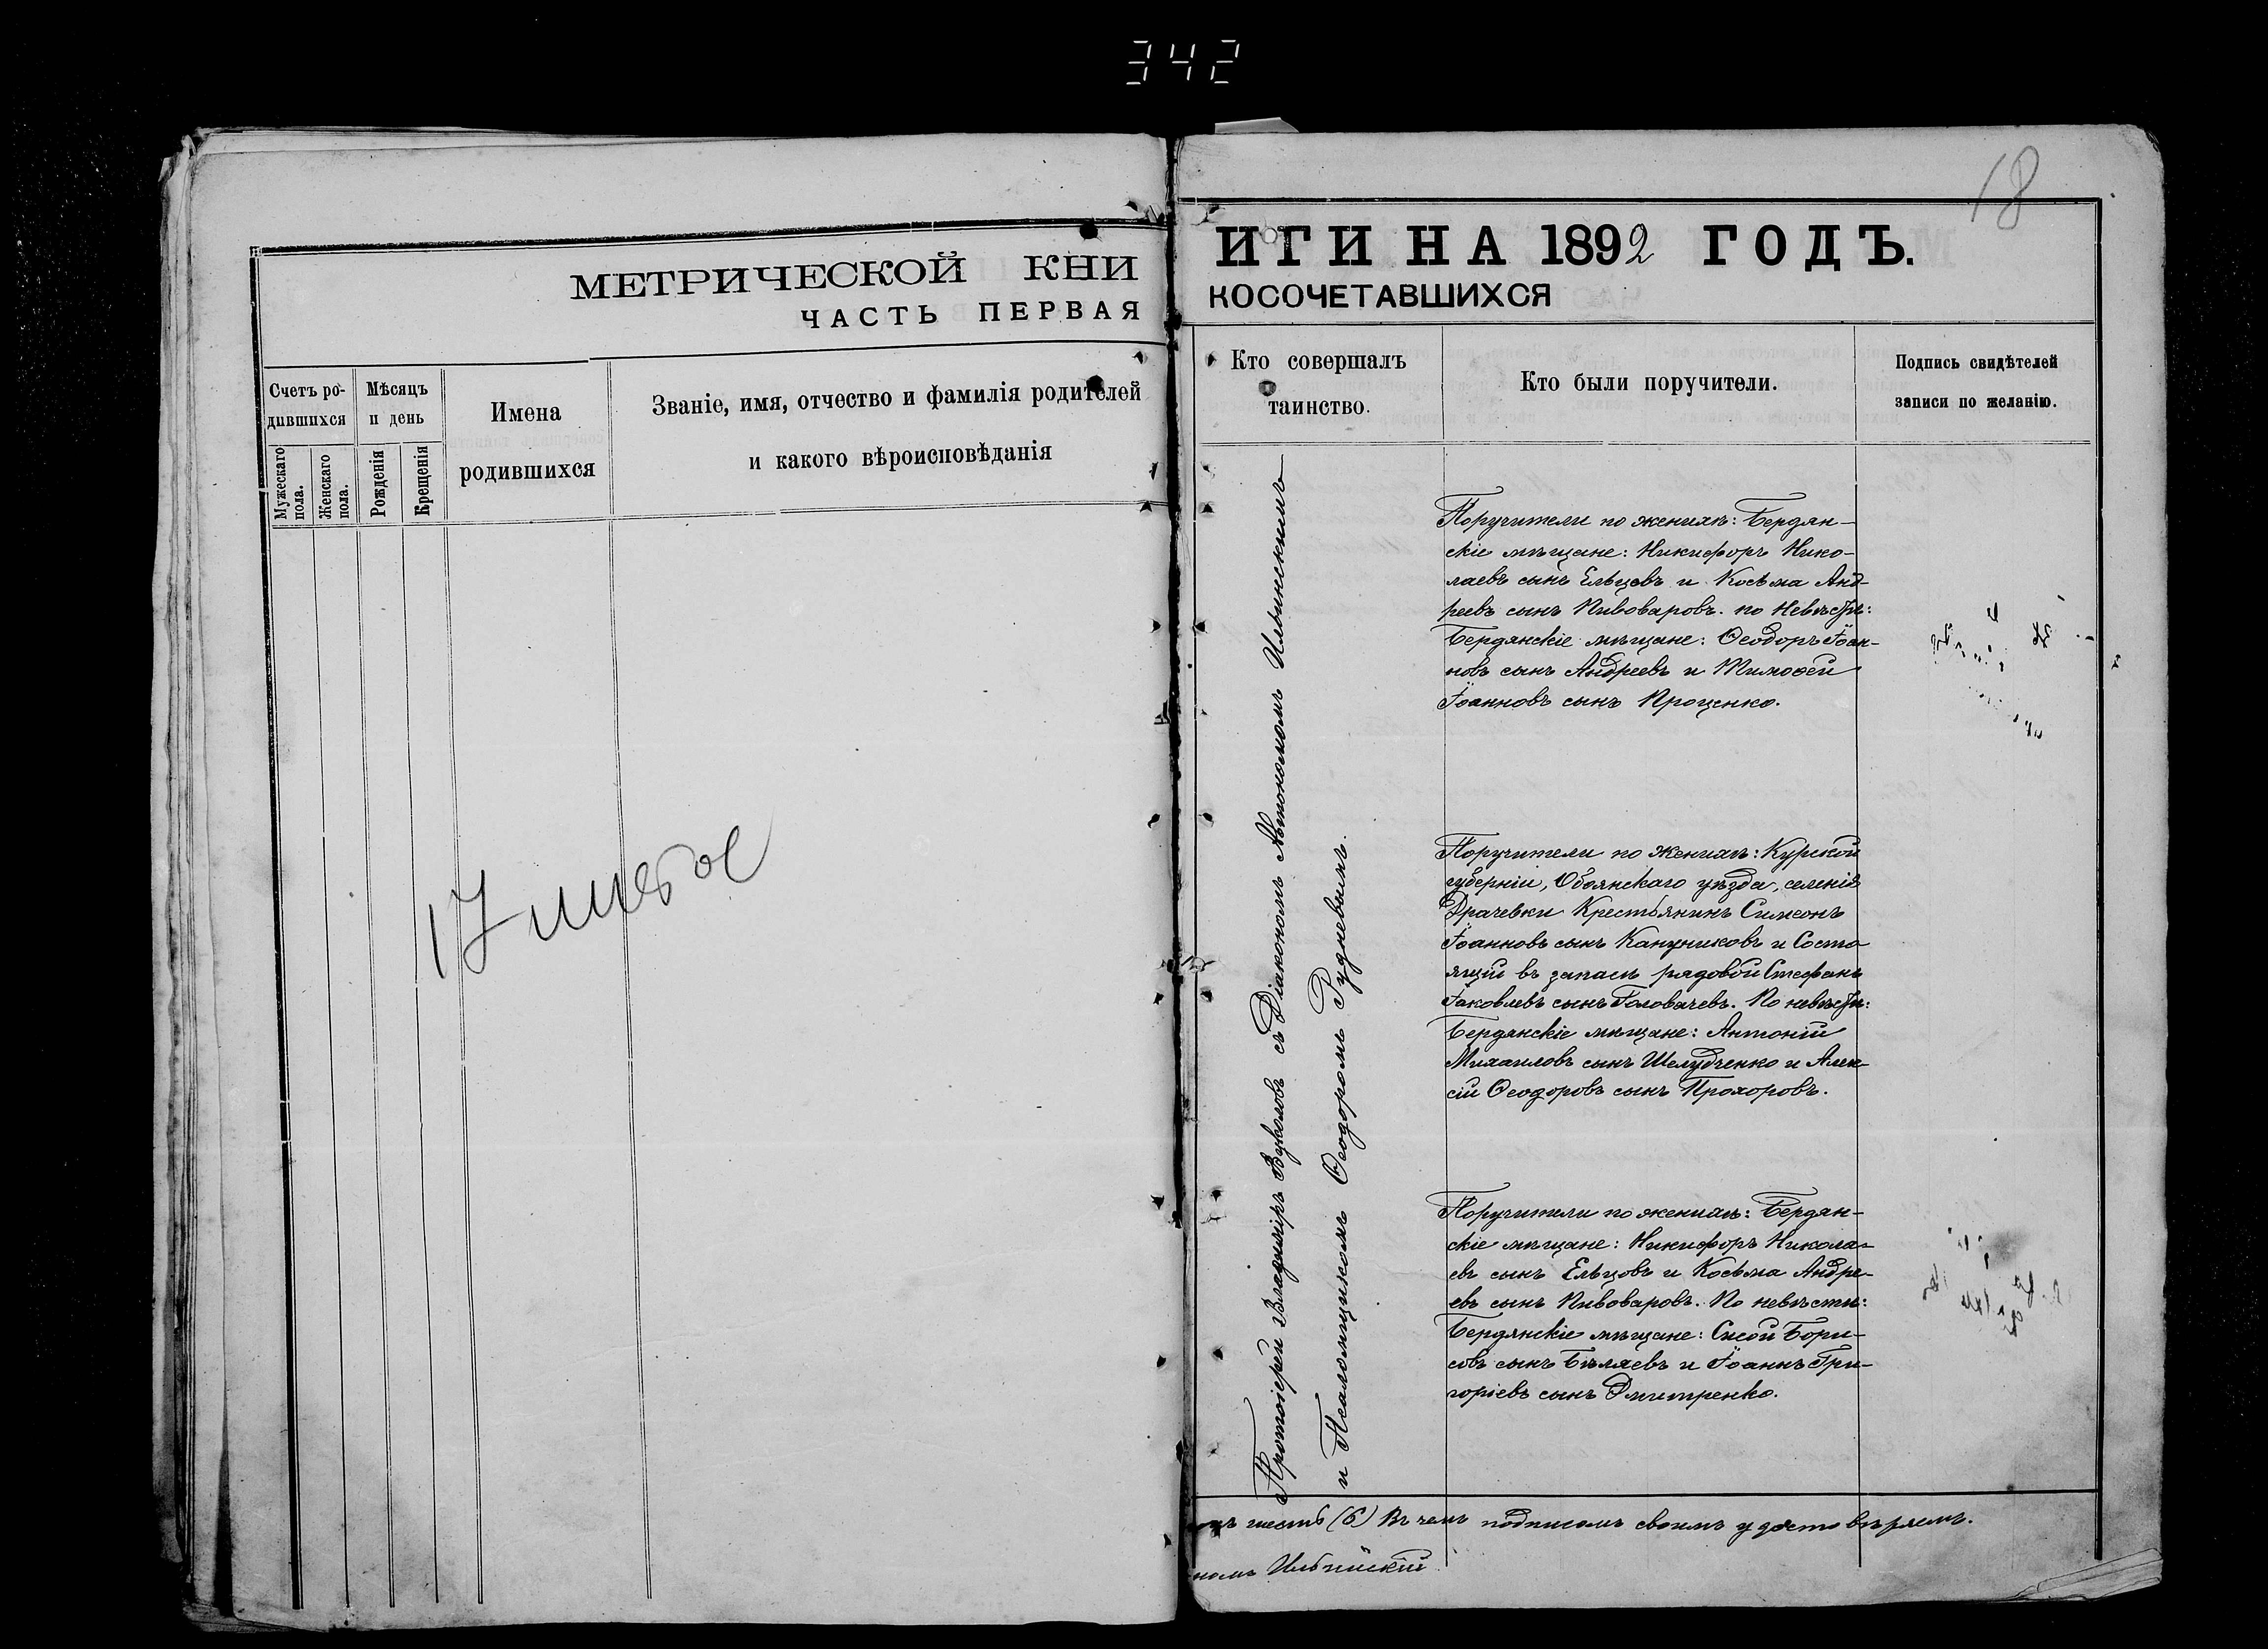 342
МЕТРИЧЕСКОЙ КНИ
ЧАСТЬ ПЕРВАЯ
Счетъ ро-
дившихся
Мѣсяцъ
и день
Имена
родившихся
Званіе, имя, отчество и фамилія родителей
и какого вѣроисповѣданія
Мужескаго
пола.
Женскаго
пола.
Рожденія
Крещенія
18
ИГИ НА 1892 ГОДЪ.
КОСОЧЕТАВШИХСЯ
Кто совершалъ
таинство.
Кто были поручители.
Подпись свидѣтелей
записи по желанію.
Протоіерей Владиміръ Вуколовъ съ Діакономъ Автономомъ Ильинскимъ
и Псаломщикомъ Ѳеодоромъ Рудневымъ.
Поручители по женихѣ: Бердян-
скіе мѣщане: Никифоръ Нико-
лаевъ сынъ Ельцовъ и Косьма Анд-
реевъ сынъ Пивоваровъ. по Невѣстѣ:
Бердянскіе мѣщане: Ѳеодоръ Іоан-
новъ сынъ Андреевъ и Тимоѳей
Іоанновъ сынъ Проценко.
Поручители по женихѣ: Курской
губерніи, Обоянскаго уѣзда, селенія
Драчевки Крестьянинъ Симеонъ
Іоанновъ сынъ Кануниковъ и Состо
ящій въ запасѣ рядовой Стефанъ
Іаковлевъ сынъ Головачевъ. По невѣстѣ:
Бердянскіе мѣщане: Антоній
Михаиловъ сынъ Шелудченко и Алек
сій Ѳеодоровъ сынъ Прохоровъ.
Поручители по женихѣ: Бердян-
скіе мѣщане: Никифоръ Никола-
евъ сынъ Ельцовъ и Косьма Андре-
евъ сынъ Пивоваровъ. По невѣстѣ:
Бердянскіе мѣщане: Сисой Бори-
совъ сынъ Бѣляевъ и Іоаннъ Гри-
горіевъ сынъ Дмитренко.
шесть (6) Въ чемъ подписомъ своимъ удостовѣряемъ.
номъ Ильинскій